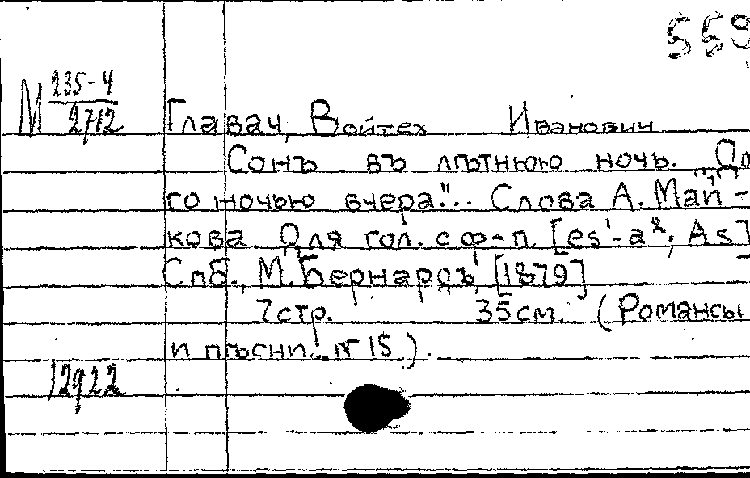 559
М 235-4
2712
Главач, Войтех Иванович
Сонъ въ лѣтнюю ночь. „До
го ночью вчера"... Слова А. Май-
кова. Для гол. с ф-п. [es'-a²; As]
Спб., М. Бернардъ, [1879]
7 стр. 35 см. (Романсы
и пѣсни. № 15).
12922